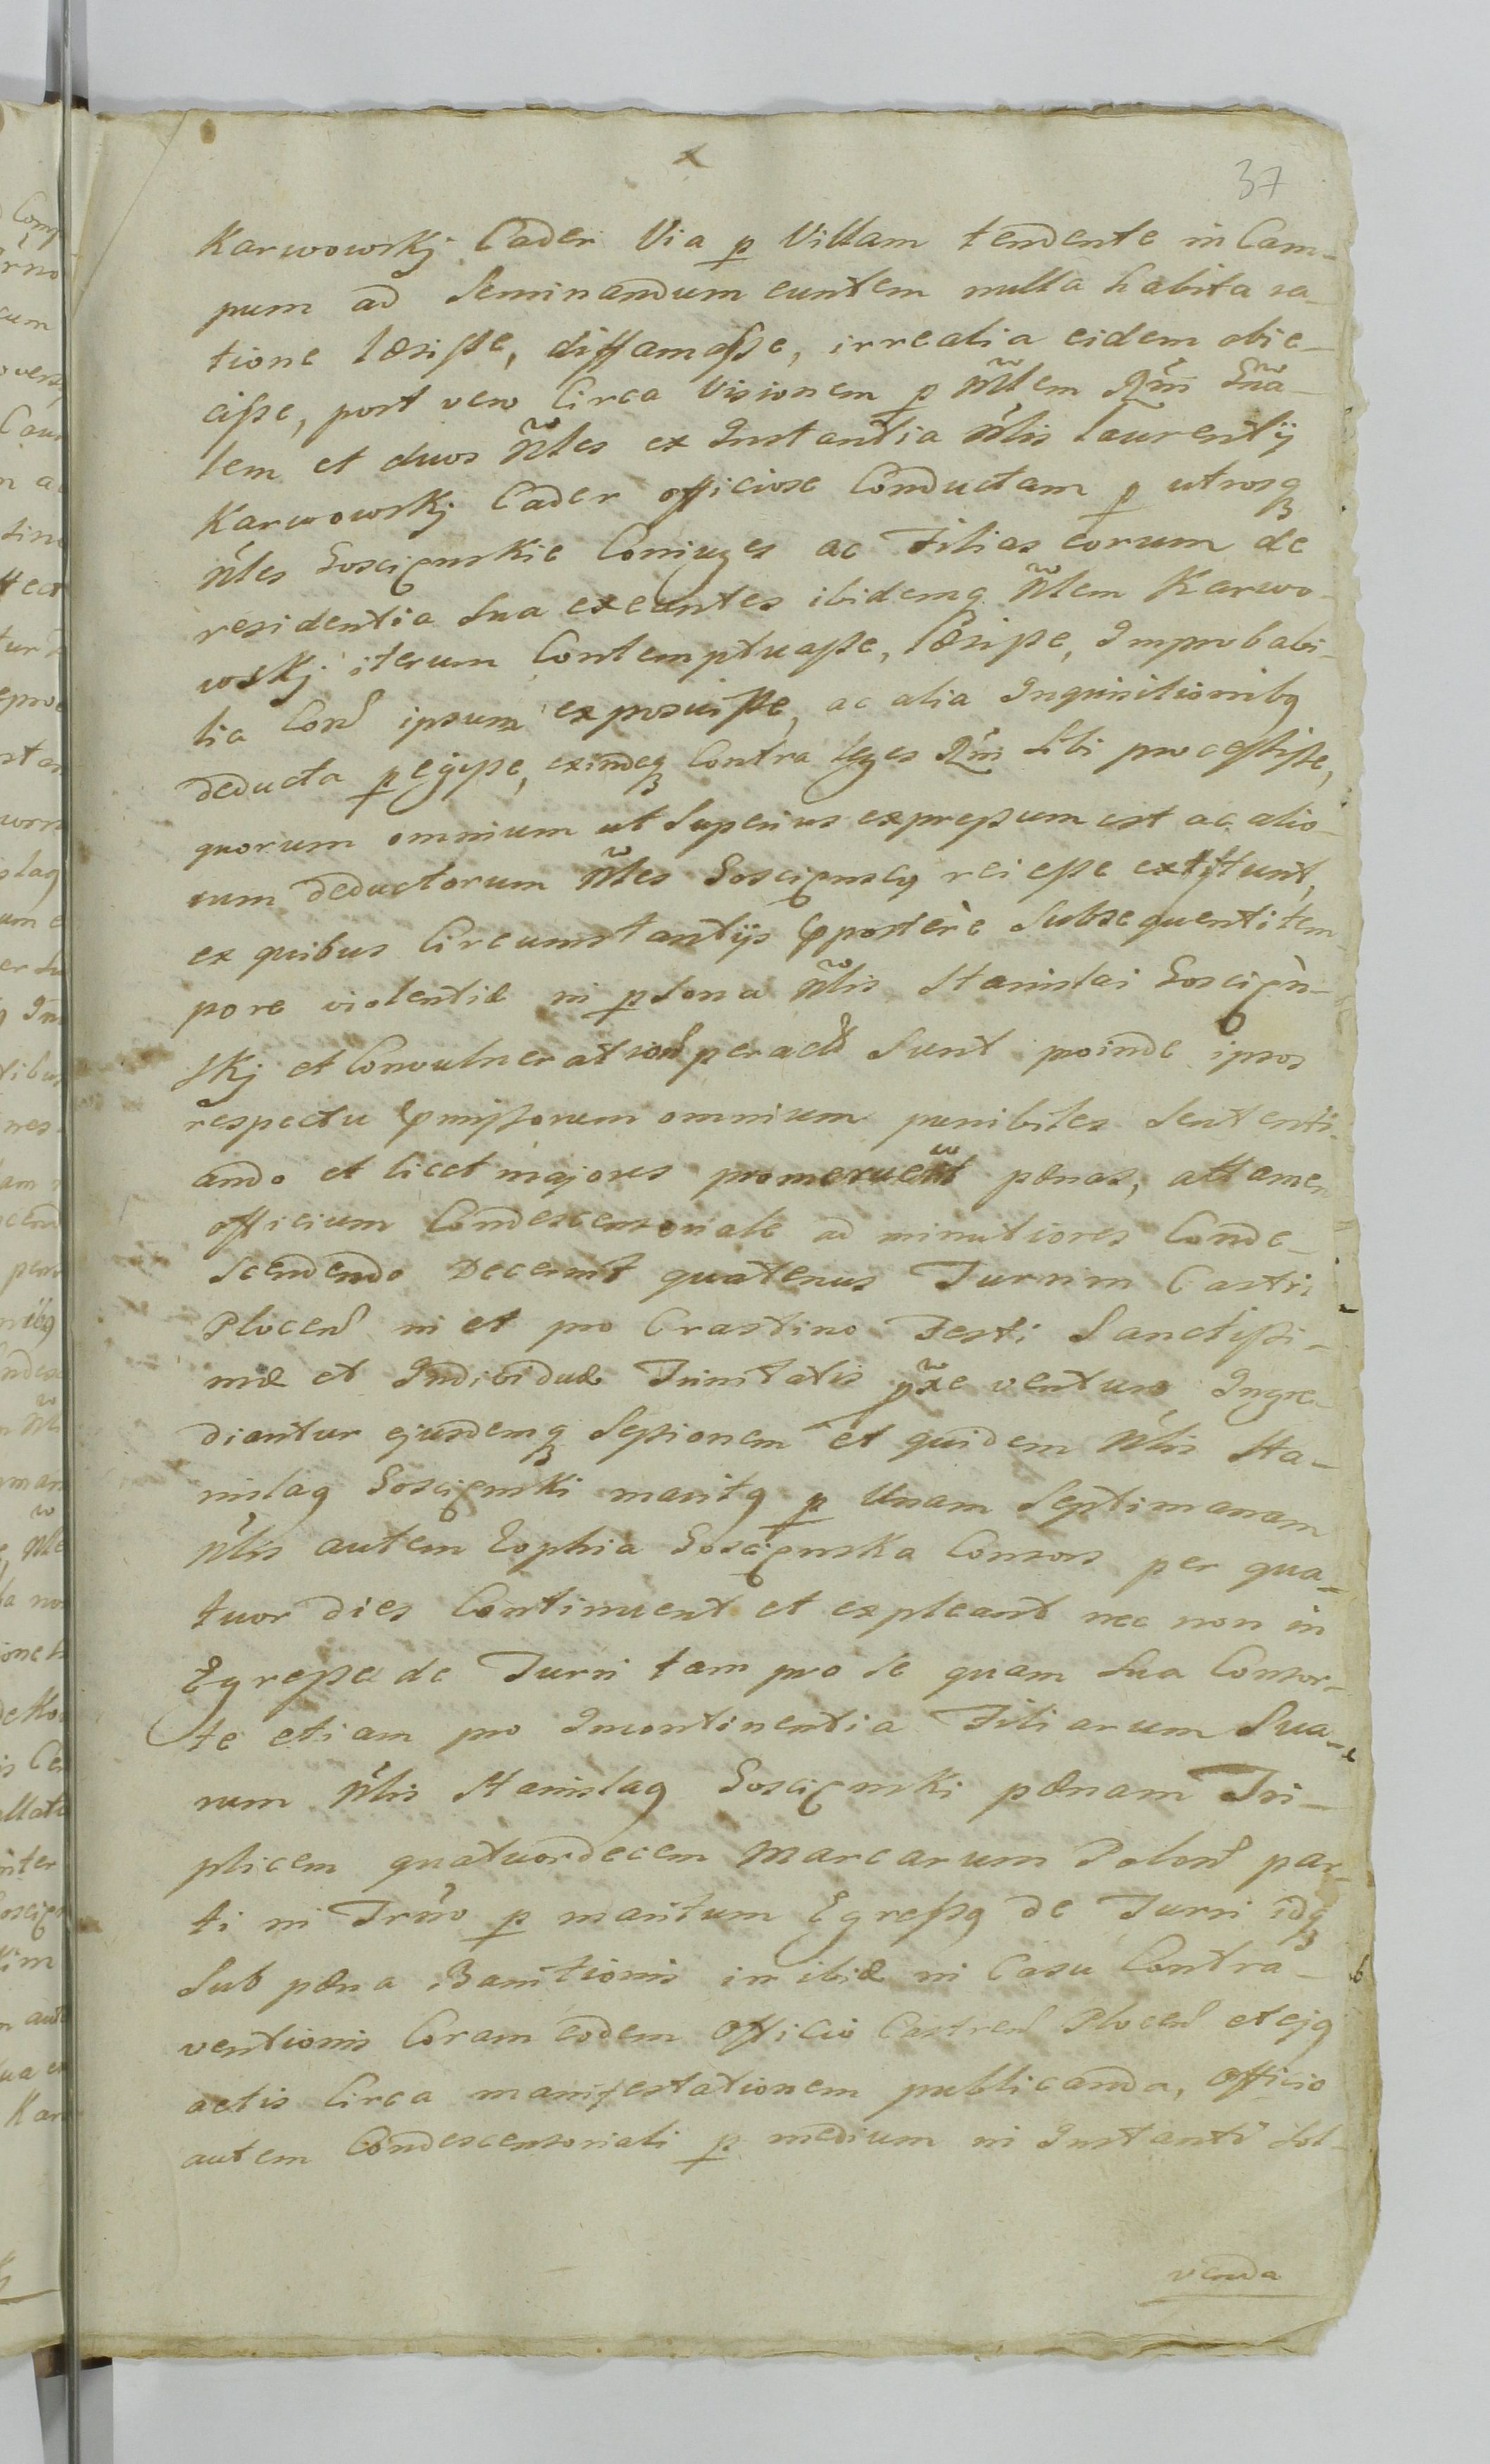 37
Karwowskj Cader Via p Villam tendente in Cam-
pum ad Seminandum euntem nulla habita ra-
tione læsisse, diffamasse, irrealia eidem obie-
cisse, post vero Circa Visionem p Nlem Rñi Gñã-
lem et duos Nles ex Instantia Nlis Laurentij
Karwowskj Cader officiose Conductam p utrosq
Nles Goscięnskie Coniuges ac Filias eorum de
residentia Sua exeuntes ibidemq Nlem Karwo-
wskj iterum Contemptuasse, læsisse, Improbabi-
lia Con ipsum exposuisse, ac alia Inquisitionibq
deducta p egisse, exindeq Contra leges Rñi Sibi processisse,
quorum omnium ut Superius expressum est ac alio-
rum deductorum Nles Goscięnscy rei esse extitunt,
ex quibus Circumstantijs postère Subsequenti tem-
pore violentiæ in psona Nlis Stanislai Gosciẹn-
skj et Convulneration peract Sunt proinde ipsos
respectu pmissorum omnium punibiles Sententi-
ando et licet majores promeruerint pœnas, attamen
officium Condescensoriale ad minutiores Conde-
Scendendo Decernit quatenus Turrim Castri
Plocen in et pro Crastino Festi Sanctissi-
mæ et Individuæ Trinitatis pxe venturo Ingre-
diantur ejusdemq Sessionem et quidem Nlis Sta-
nislaq Gosciẹnski maritq p Unam Septimanam
Nlis autem Zophia Gosciẹnska Consors per qua-
tuor dies Continuent et expleant nec non in
Egressu de Turri tam pro se quam Sua Consor-
te etiam pro Incontinentia Filiarum Sua-
rum Nlis Stanislaq Gosciẹnski pœnam Tri-
plicem quatuordecem Marcarum Polon par-
ti in Trño p maritum Egressq de Turri idq
Sub pœna Banitionis in ibiđ in Casu Contra-
ventionis Coram eodem Officio Castren Plocen et ejq
actis Circa manifestationem publicanda, Officio
autem Condescensoriali p medium in Instanti Sol-
venda